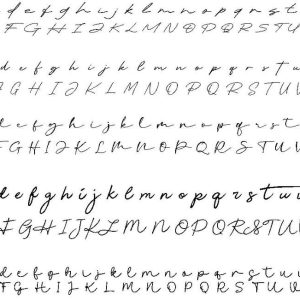 d e f g h i j k l m n o p q r s t u
F G H I J K L M N O P Q R S T U
d e f g h i j k l m n o p q r s t u
F G H I J K L M N O P Q R S T U V
d e f g h i j k l m n o p q r s t u
F G H I J K L M N O P Q R S T U V
d e f g h i j k l m n o p q r s t u
F G H I J K L M N O P Q R S T U V
d e f g h i j k l m n o p q r s t u
G H I J K L M N O P Q R S T U V